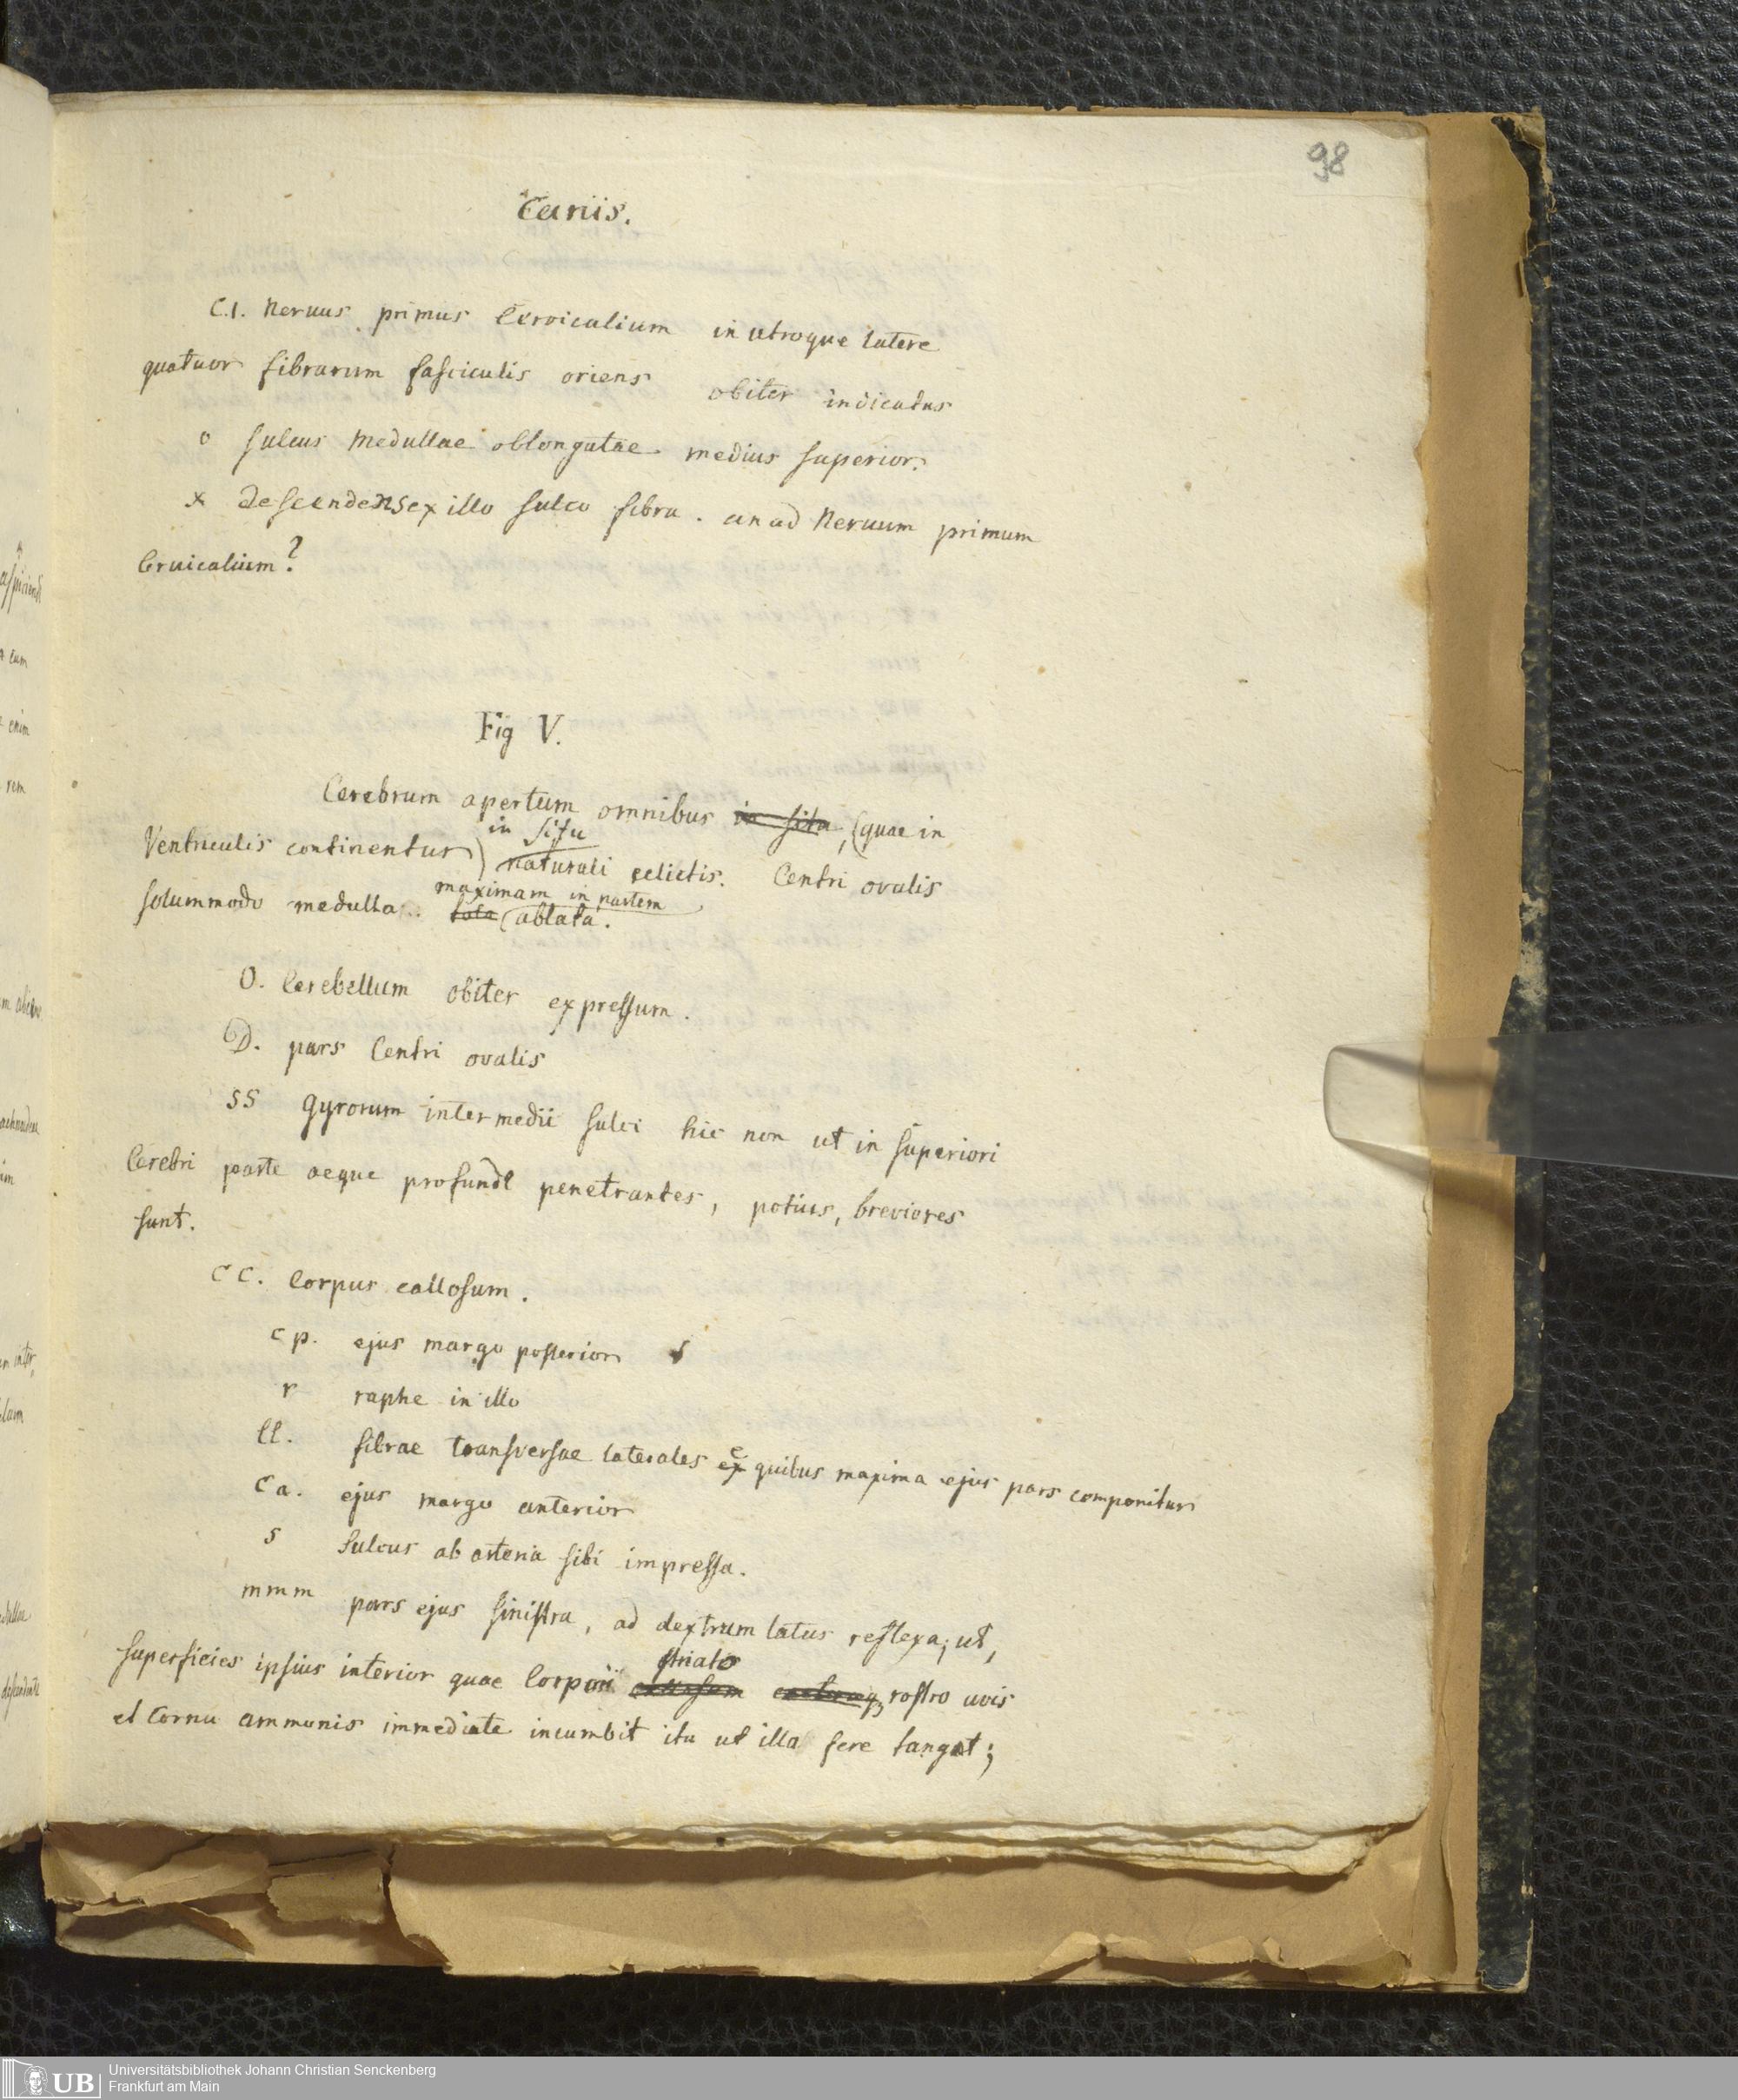 98
Canis.
C.1. Nervus primus Cervicalium in utroque latere
quatuor fibrarum fasciculis oriens obiter indicatus
o sulcus Medullae oblongatae medius superior.
x descendens ex illo sulco fibra. an ad Nervum primum
Cervicalium?
Fig V.
Cerebrum apertum omnibus in situ, (quae in
Ventriculis continentur) in situ naturali relictis. Centri ovalis
solummodo medulla tota maximam in partem ablata.
O. Cerebellum obiter expressum.
D. pars Centri ovalis
SS Gyrorum intermedii sulci hic non ut in superiori
Cerebri parte aeque profunde penetrantes, potius, breviores
sunt.
C C. Corpus callosum.
c p. ejus margo posterior
r raphe in illo
ll. fibrae transversae laterales ex e quibus maxima ejus pars componitur
C a. ejus margo anterior
s Sulcus ab arteria sibi impressa.
m m m pars ejus sinistra, ad dextrum latus reflexa; ut,
superficies ipsius interior quae Corpori striato rostro avis
et Cornu ammonis immediate incumbit ita ut illa fere tangat;
aspiciendi
cum
enim
rem
im
UB Universitätsbibliothek Johann Christian Senckenberg
Frankfurt am Main